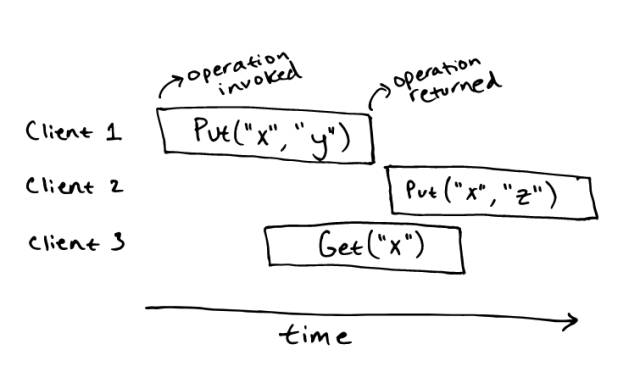 operation
invoked
operation
returned
Client 1
Put("x", "y")
Client 2
Put("x", "z")
Client 3
Get("x")
time